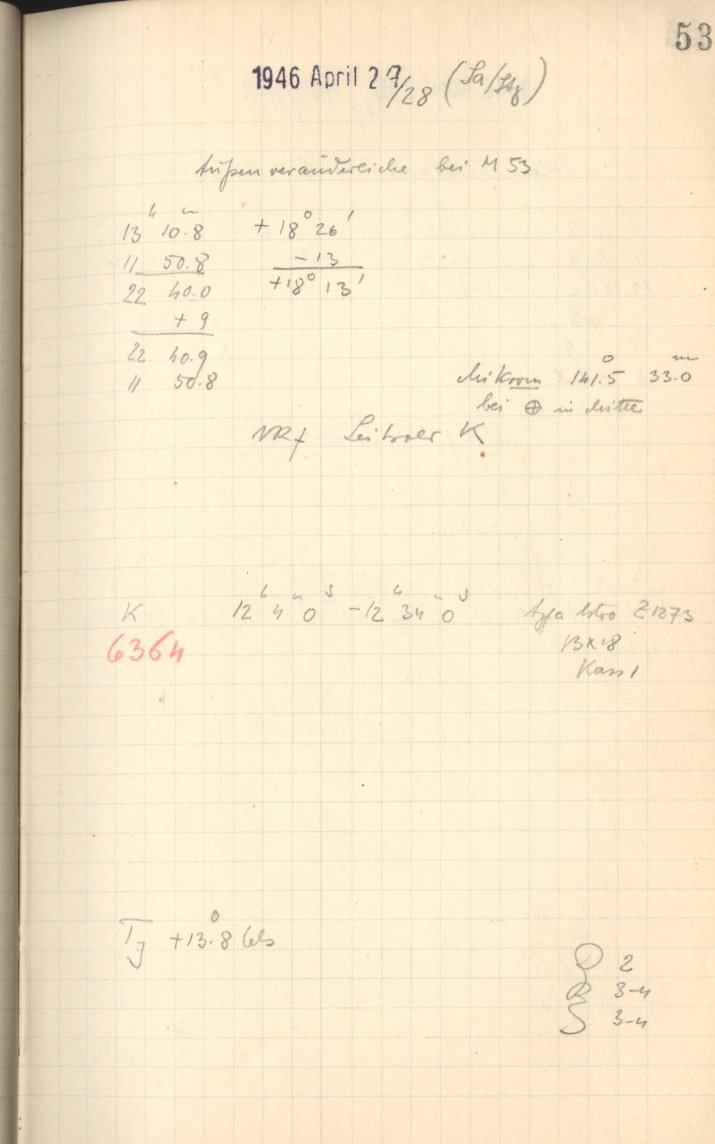 53
1946 April 27/28 (Sa/Stg)
Außenveränderliche bei M 53
13h 10m.8 + 18° 26'
11 50.8 - 13
22 40.0 +18° 13'
+ 9
22 40.9
11 50.8
Mikrom 141°.5 33mm.0
bei ⊕ in Mitte
Leitroer K
K 12h 4m 0s - 12h 34m 0s Agfa Astro Z1273
6364 13x18
Kass 1
+13°.8 Cels
2
R 3-4
S 3-4